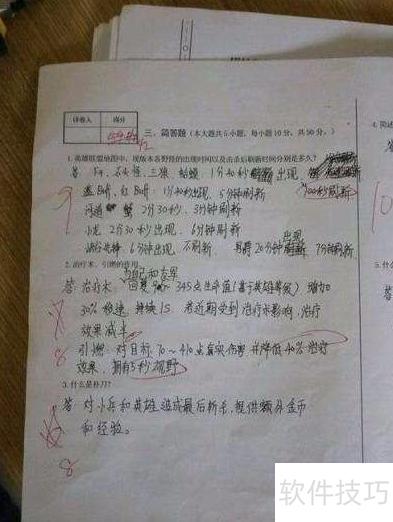 评卷人 得分
三、简答题（本大题共5小题，每小题10分，共50分。）
1.英雄联盟地图中，现版本各野怪的出现时间以及击杀后刷新时间分别是多久？
答: F4、石头怪、三狼、蛤蟆, 1分40秒 出现 100秒刷新
蓝Buff、红Buff: 1分40秒出现, 5分钟刷新
河道蟹 2分30秒. 3分钟刷新
小龙 2分30秒出现, 6分钟刷新
峡谷先锋 6分钟出现、不刷新. 男爵20分钟出现 7分钟刷新
2.治疗术、引燃的作用。
答: 治疗术: 为自己和友军回复 345点生命值(基于英雄等级) 增加
30% 移速, 持续1S. 若近期受到治疗术影响, 治疗
效果减半
引燃: 对目标 70~410点真实伤害 并降低40%治疗
效果. 拥有5秒视野
3.什么是补刀?
答: 对小兵和英雄造成最后斩杀, 提供额外金币
和经验。
9
8
8
10
4.简述
答
5.什么
软件技巧